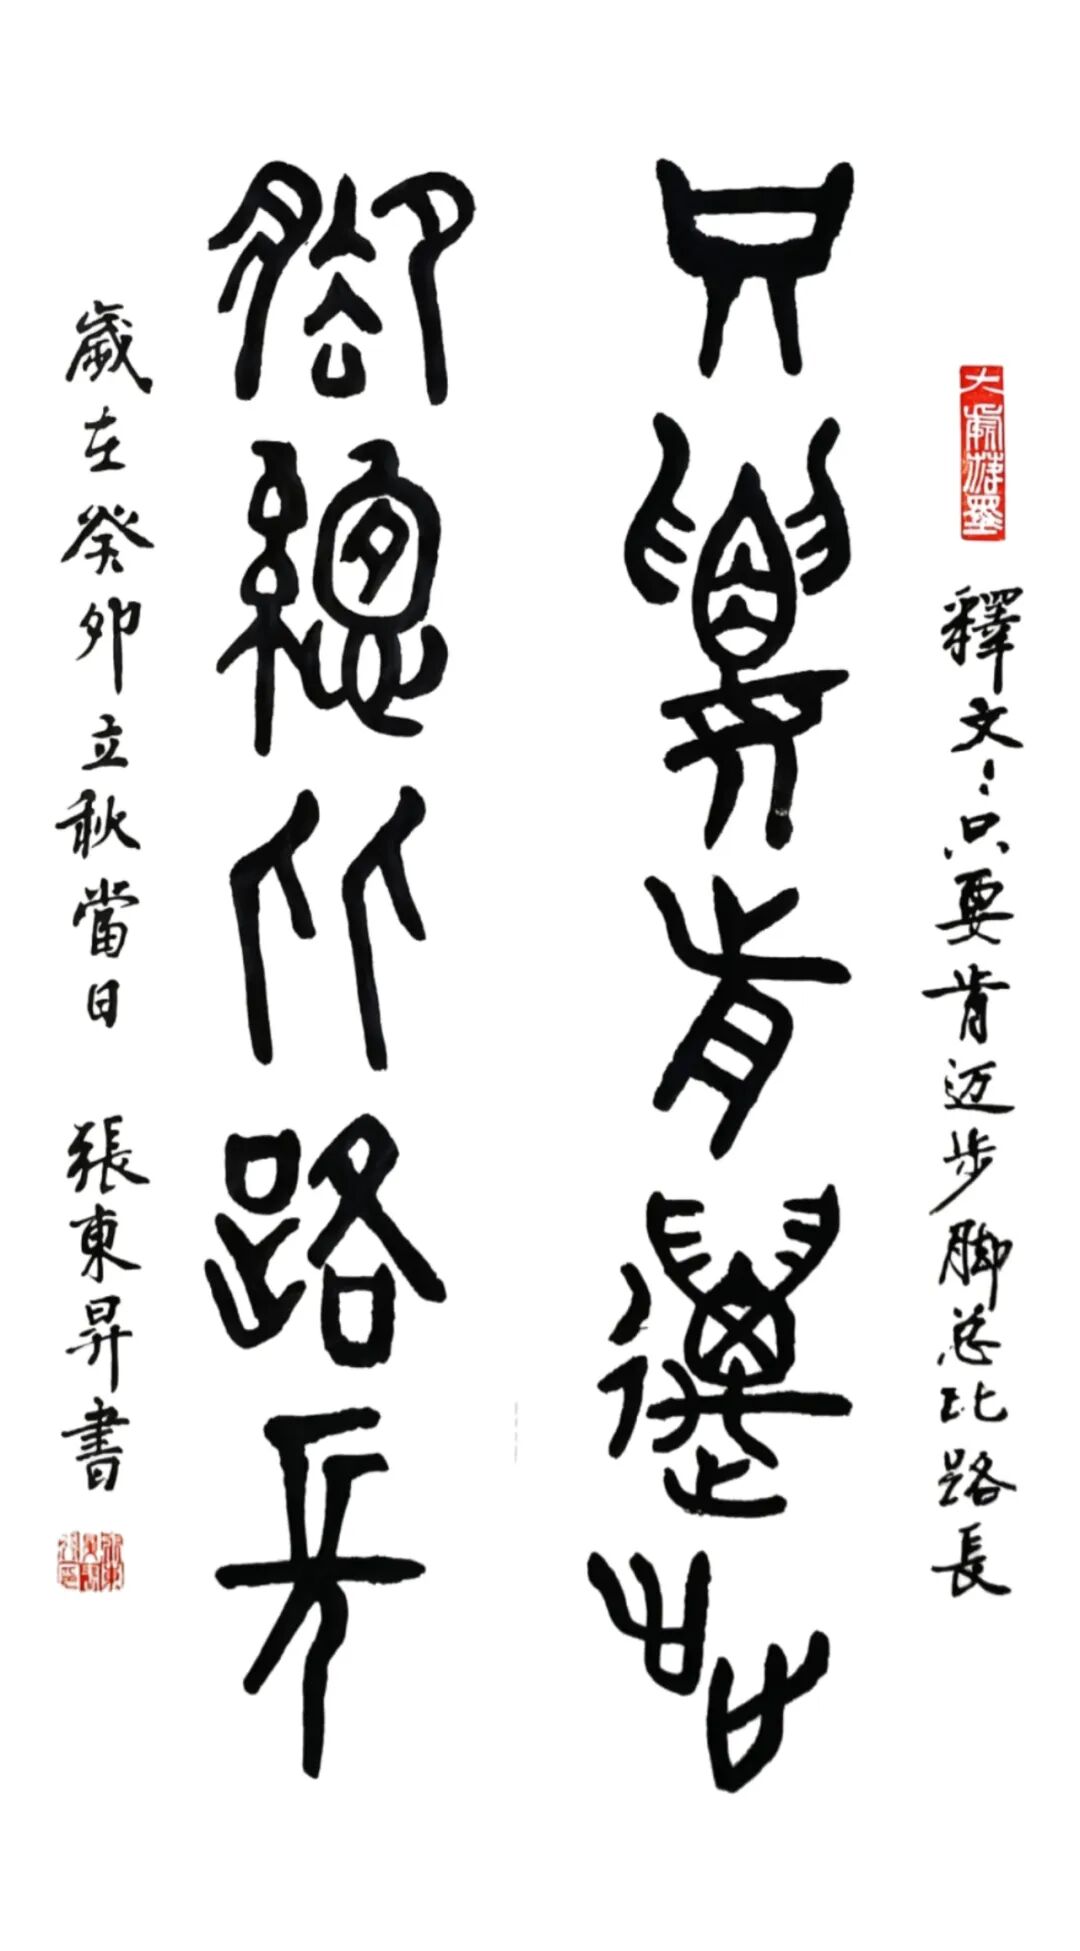 釋文：只要肯迈步脚总比路長
只要肯邁步
腳總比路長
歲在癸卯立秋當日 張東昇書